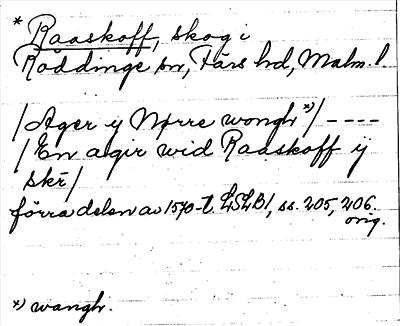 * Raaskoff, skog i
Röddinge sn, Färs hd, Malm. l.
/Ager y Nørre wongh *)/ ----
/En agir wid Raaskoff ÿ
skr̄/
förra delen av 1570-t. LSLB1, ss. 205, 206.
orig.
*) wangh.